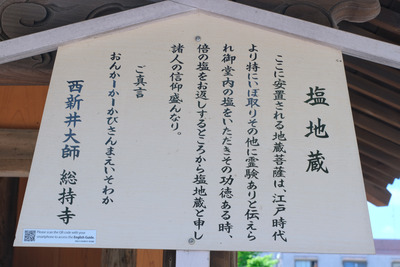 塩地蔵
ここに安置される地蔵菩薩は、江戸時代
より特にいぼ取りその他に霊験ありと伝えら
れ御堂内の塩をいただきその功徳ある時、
倍の塩をお返しするところから塩地蔵と申し
諸人の信仰盛んなり。
ご真言
おんかーかーかびさんまえいそわか
西新井大師 総持寺
Please scan the QR code with your
smartphone to access the English Guide.